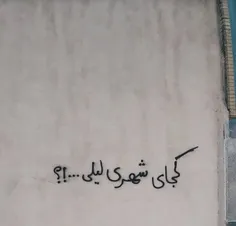 کجای شهری لیلی...!؟